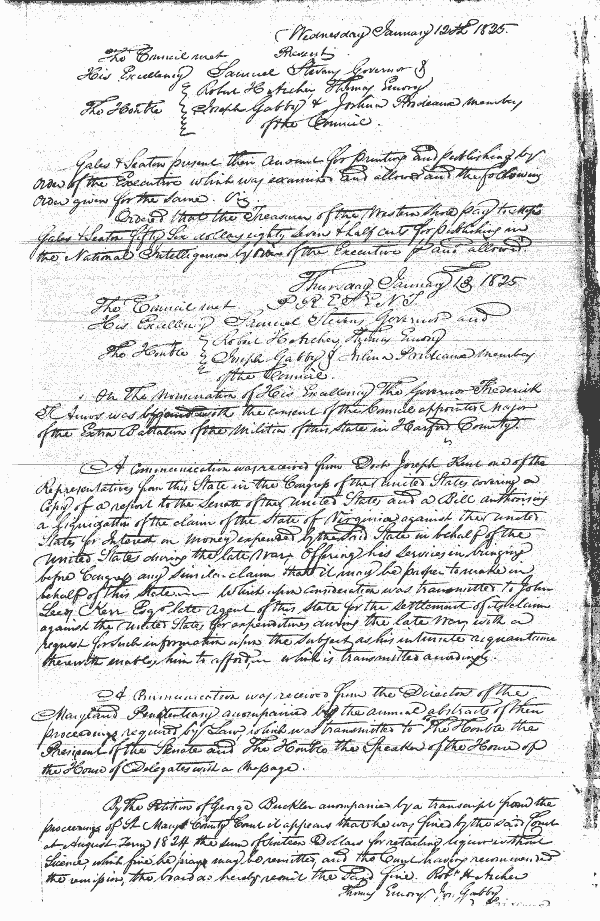 Wednesday January 12th 1825.
The Council met Present
His Excellency Samuel Stevens Governor &
Robert H Archer, Thomas Emory
The Honble Joseph Gabby & Joshua Prideaux members
of the Council.
Gales & Seaton present their account for printing and publishing by
order of the Executive which was examined and allowed and the following
order given for the same. Viz
Ordered that the Treasurer of the Western Shore pay to
Gales & Seaton fifty Six dollars eighty seven & half cents for publishing in
the National Intelligencer by order of the Executive and allowed
Thursday January 13, 1825
The Council met PRESENT
His Excellency Samuel Stevens, Governor and
Robert H Archer, Thomas Emory
The Honble Joseph Gabby & Joshua Prideaux members
of the Council.
On The Nomination of His Excellency The Governor Frederick
T Amos was by and with the consent of the Council appointed Major
of the Extra Battalion of the Militia of this State in Harford County
A Communication was received from Doctr Joseph Kent one of the
Representatives from this State in the Congress of the United States covering a
Copy of a report to the Senate of the United States and a Bill authorising
a liquidation of the claim of the State of Virginia against the United
States for Interest on money expended by the Said State in behalf of the
United States during the late War. Offering his services in bringing
before Congress any similar claim that it may be proper to make in
behalf of this State Which upon consideration was transmitted to John
Leeds Kerr Esqr late Agent of this State for the settlement of its claim
against the United States for expenditures during the late War, with a
request for such information upon the subject as his intimate acquantance
therewith enables him to afford, which is transmitted accordingly.
A Communication was received from the Director of the
Maryland Penitentiary accompanied by the annual abstracts of their
proceedings required by Law, which was transmitted to "The Honble the
President of the Senate and The Honble the Speaker of the House of
the House of Delegates with a Message.
By the Petition of George Buckler accompanied by a transcript from the
proceedings of St Mary's County Court it appears that he was fined by the said Court
at August Term 1824 the sum of Dollars for retailing liquor without
Licence, which fine he prays may be remitted, and the Court having recommended
the remission, the board do hereby remit the said fine. Robt H Archer
Thomas Emory Jos. Gabby